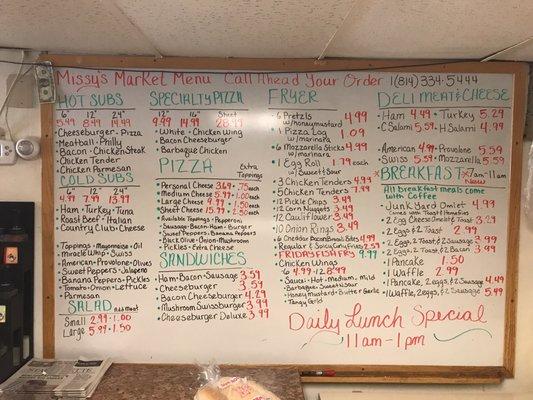 Missy's Market Menu Call Ahead For Your Order 1(814) 334-5444
HOT SUBS
6" 12" 24"
5.49 8.49 14.49
• Cheeseburger • Pizza
• Meatball • Philly
• Bacon • Chicken Steak
• Chicken Tender
• Chicken Parmesan
COLD SUBS
6" 12" 24"
4.99 7.99 13.99
• Ham • Turkey • Tuna
• Roast Beef • Italian
• Country Club • Cheese
Toppings • Mayonnaise • Oil
• Miracle Whip • Swiss
• American • Provolone • Olives
• Sweet Peppers • Jalapeno
• Banana Peppers • Pickles
• Tomato • Onion • Lettuce
• Parmesan
SALAD
Small 2.99 • 1.00
Large 5.99 • 1.50
SPECIALTY PIZZA
12" 16" Sheet
• White • Chicken Wing
• Bacon Cheeseburger
• Barbeque Chicken
PIZZA
Extra Toppings
• Personal Cheese 3.69 • .75 each
• Medium Cheese 5.99 • 1.00 each
• Large Cheese 9.99 • 1.50 each
• Sheet Cheese 15.99 • 2.50 each
• Available Toppings • Pepperoni
• Sausage • Bacon • Ham • Burger
• Sweet Peppers • Banana Peppers
• Black Olive • Onion • Mushroom
• Pickles • Extra Cheese
SANDWICHES
• Ham • Bacon • Sausage 3.59
• Cheeseburger 3.59
• Bacon Cheeseburger 4.29
• Mushroom Swiss burger 3.99
• Cheeseburger Deluxe 3.99
FRYER
• 6 Pretzls 4.99
w/honeymustard
• 1 Pizza Log 1.09
w/marinara
• 6 Mozzarella Sticks 4.99
w/marinara
• 1 Egg Roll 1.79 each
w/Sweet & Sour
• 3 Chicken Tenders 4.99
• 5 Chicken Tenders 7.99
• 12 Pickle Chips 3.49
• 12 Corn Nuggets 3.49
• 12 Cauliflower 3.49
• 10 Onion Rings 3.49
• 6 Cheddar Bacon Bites 4.99
• Regular & Curly Fries 2.59
FRIDAY
• Chicken Wings
• 6 4.99 • 12 8.49
• Sauce • Hot • Medium • Mild
• Barbeque • Sweet & Sour
• Honey Mustard • Butter Garlic
• Tangy Gold
DELI MEAT & CHEESE
• Ham 4.49 • Turkey 5.29
• C Salami 5.09 • H Salami 4.99
• American 4.99 • Provolone 5.59
• Swiss 5.59 • Mozzarella 5.59
BREAKFAST 7am-11am
NOW
All breakfast meals come with Coffee
• Junk Yard Omlet 4.99
• 2 Egg Cheese Omlet & Toast 3.29
• 2 Eggs & Toast 2.99
• 2 Eggs, 2 Toast & 2 Sausage 3.99
• 2 Eggs, 2 Toast & 2 Bacon 3.99
• 1 Pancake 1.50
• 1 Waffle 2.99
• 1 Pancake, 2 eggs, & 2 Sausage 4.49
• 1 Waffle, 2 eggs, & 2 Sausage 5.49
Daily Lunch Special
11am-1pm